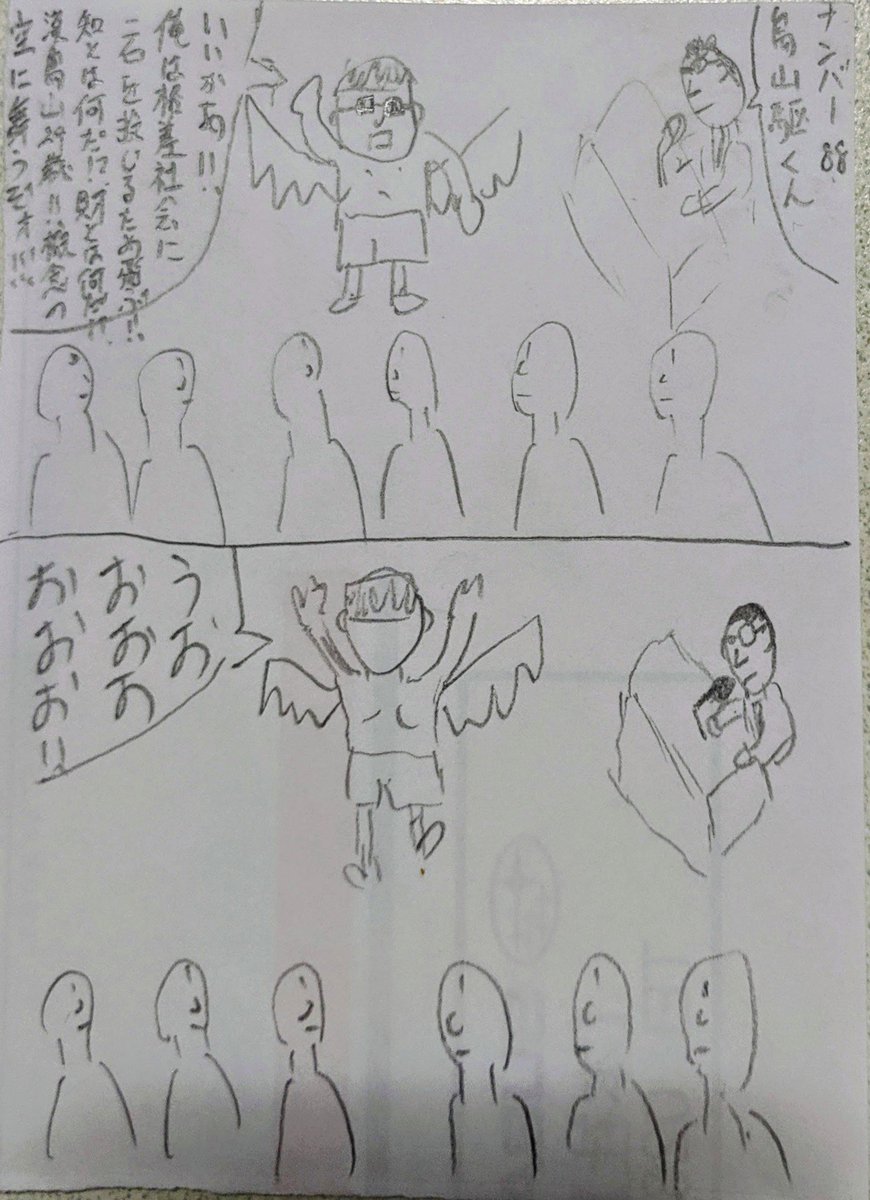 ナンバー88
鳥山駆くん
いいかあ!!
俺は格差社会に
一石を投じるため飛ぶ!!
知とは何だ!? 財とは何だ!?
漢鳥山24歳!! 概念への
空に舞うぜオ!!
うお
おおお
おおお!!